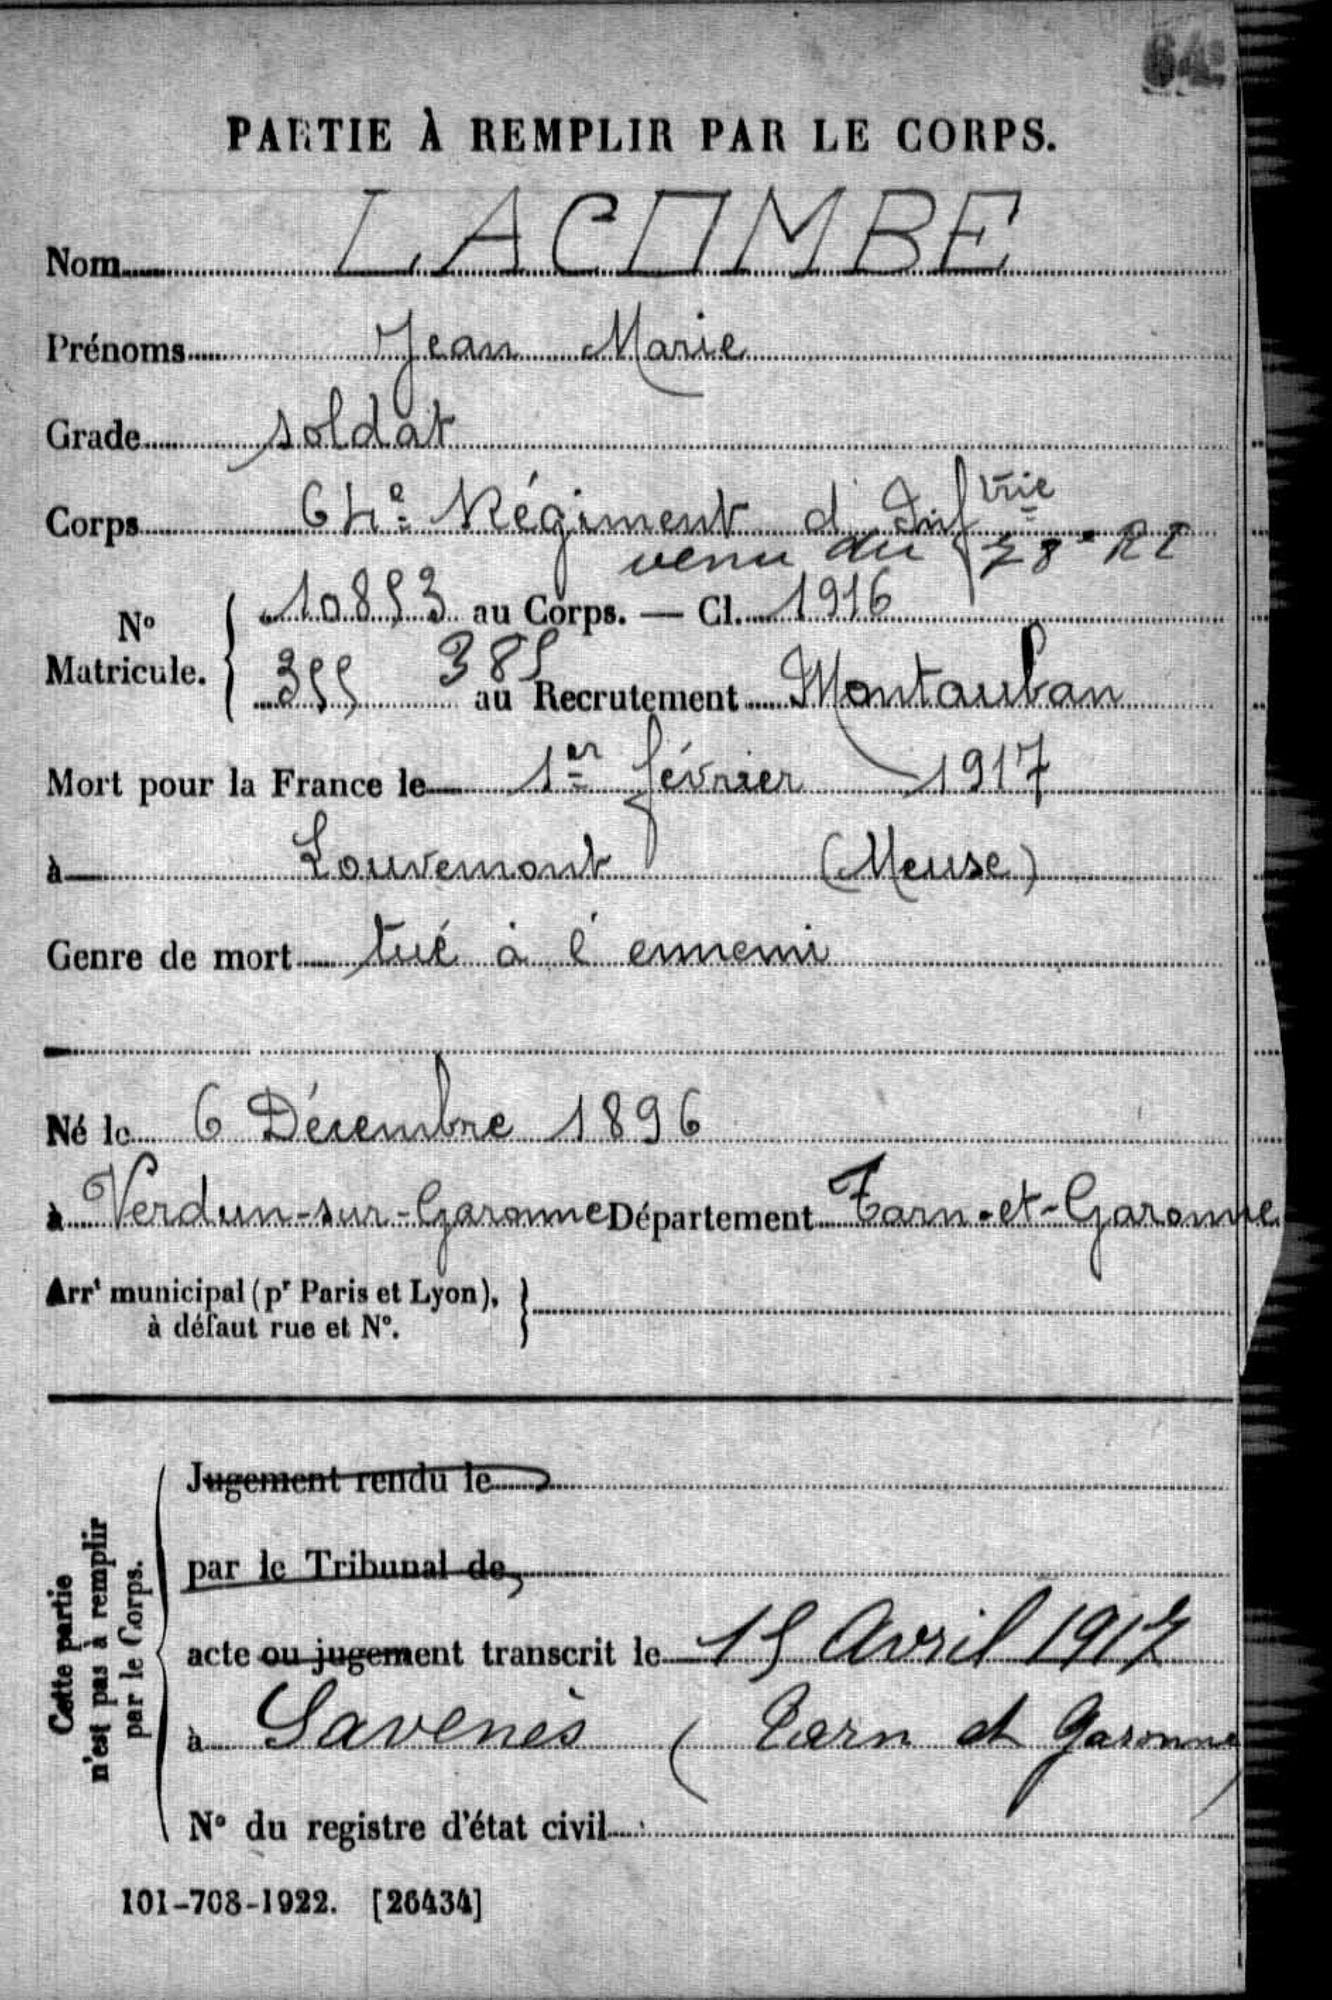 64e
PARTIE À REMPLIR PAR LE CORPS.
Nom LACOMBE
Prénoms Jean Marie
Grade soldat
Corps 64e Régiment d'Inftrie
venu du
N° Matricule. 10853 au Corps. — Cl. 1916
355 385 au Recrutement Montauban
Mort pour la France le 1er février 1917
à Louvemont (Meuse)
Genre de mort tué à l'ennemi
Né le 6 Décembre 1896
à Verdun-sur-Garonne Département Tarn-et-Garonne
Arrt municipal (pr Paris et Lyon),
à défaut rue et N°.
Cette partie
n'est pas à remplir
par le Corps.
Jugement rendu le
par le Tribunal de
acte ou jugement transcrit le 15 Avril 1917
à Savenès (Tarn et Garonne)
N° du registre d'état civil
101-708-1922. [26434]